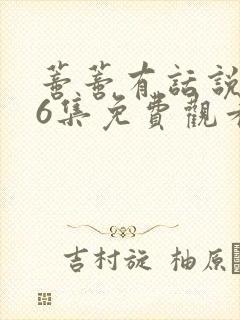 蔷蔷有話說
6集免費觀看
吉村旋 柚原